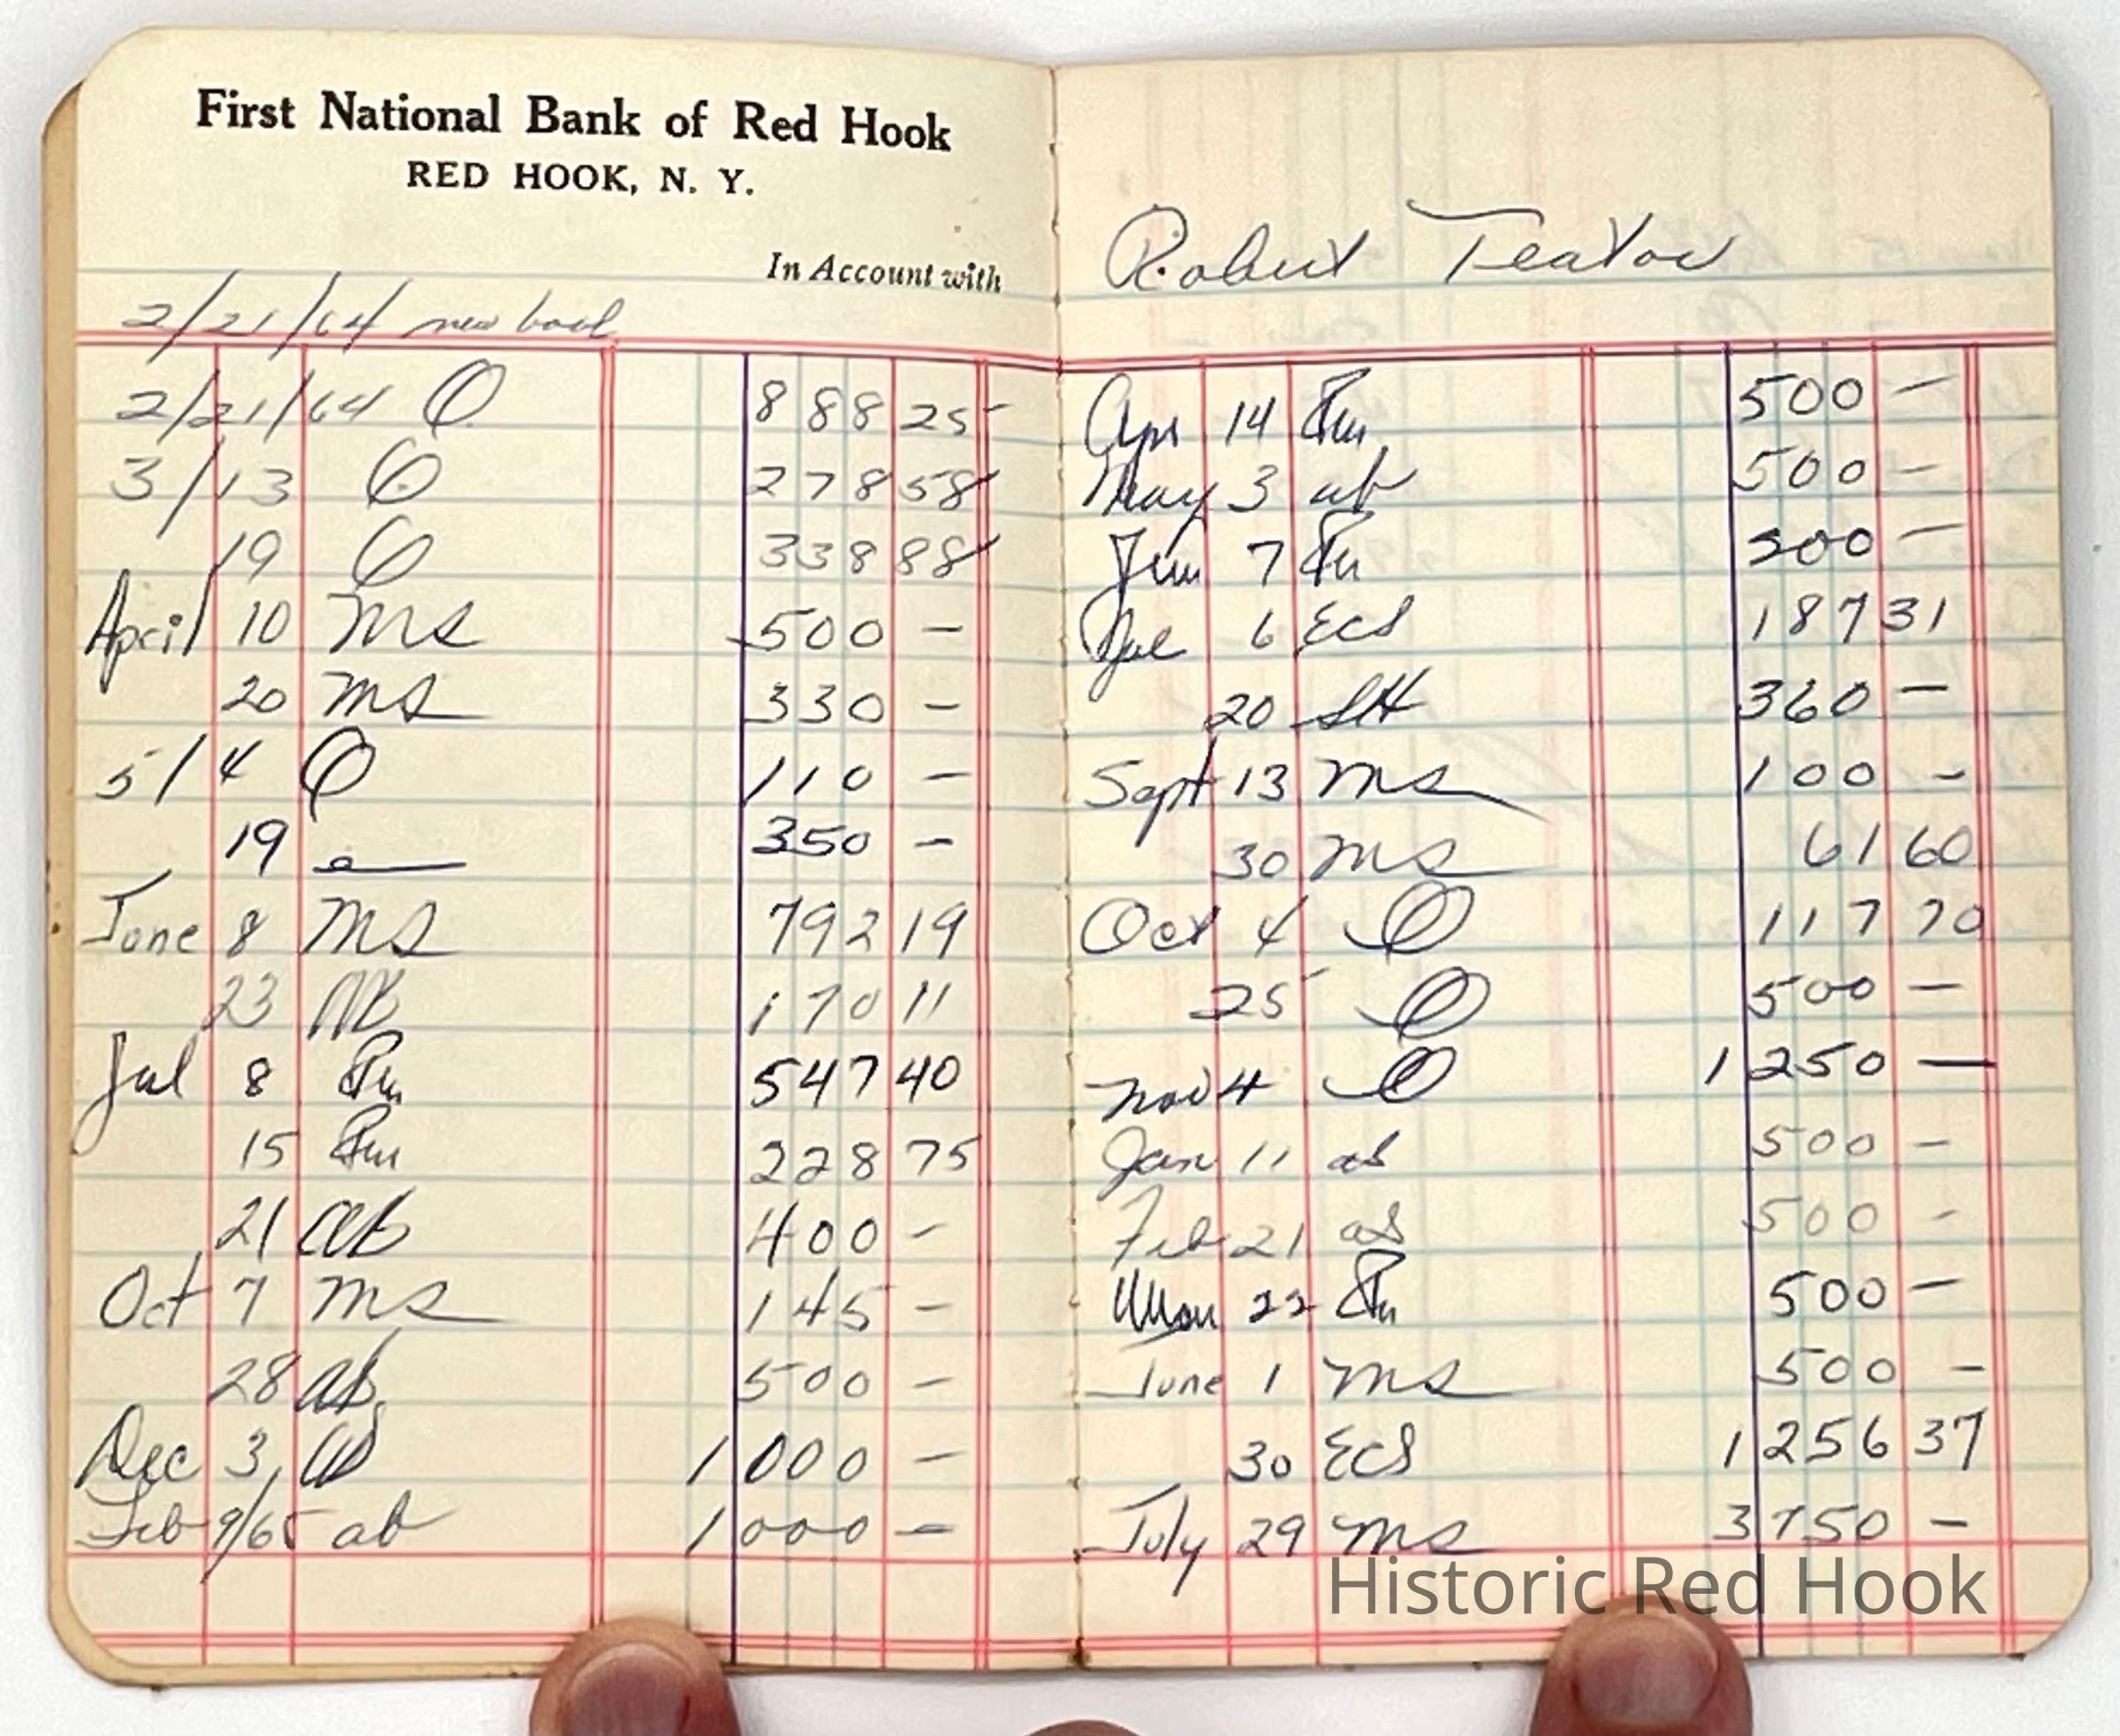 First National Bank of Red Hook
RED HOOK, N. Y.
In Account with
2/21/64 new book
2/21/64 888 25
3/13 278 58
19 338 88
April 10 ms 500 —
20 ms 330 —
5/4 110 —
19 350 —
June 8 ms 792 19
23 170 11
Jul 8 547 40
15 228 75
21 ab 400 —
Oct 7 ms 145 —
28 ab 500 —
Dec 3 1 000 —
Feb 9/65 ab 1 000 —
Robert Teator
Apr 14 500 —
May 3 ab 500 —
Jun 7 500 —
Jul 6 ECS 187 31
20 SH 360 —
Sept 13 ms 100 —
30 ms 61 60
Oct 4 117 70
25 500 —
Nov 4 1 250 —
Jan 11 ab 500 —
Feb 21 ab 500 —
Mar 22 500 —
June 1 ms 500 —
30 ECS 1 256 37
July 29 ms 3 750 —
Historic Red Hook